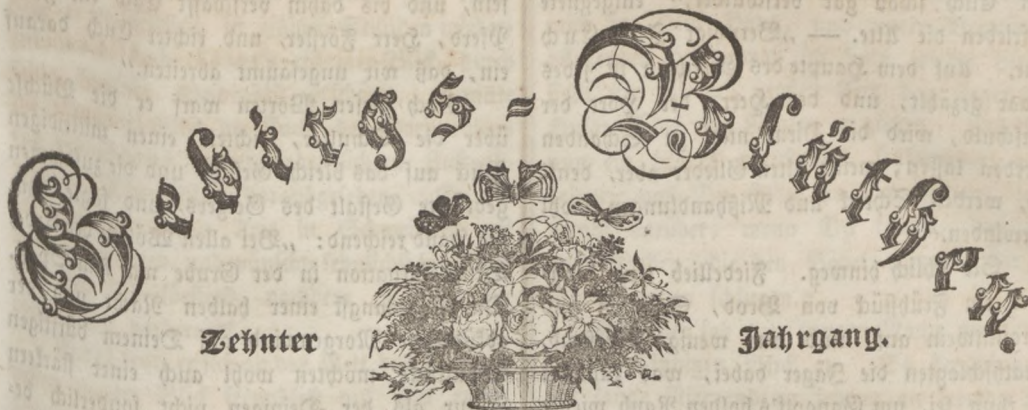 Gebirgs-Blüthen.
Zehnter Jahrgang.